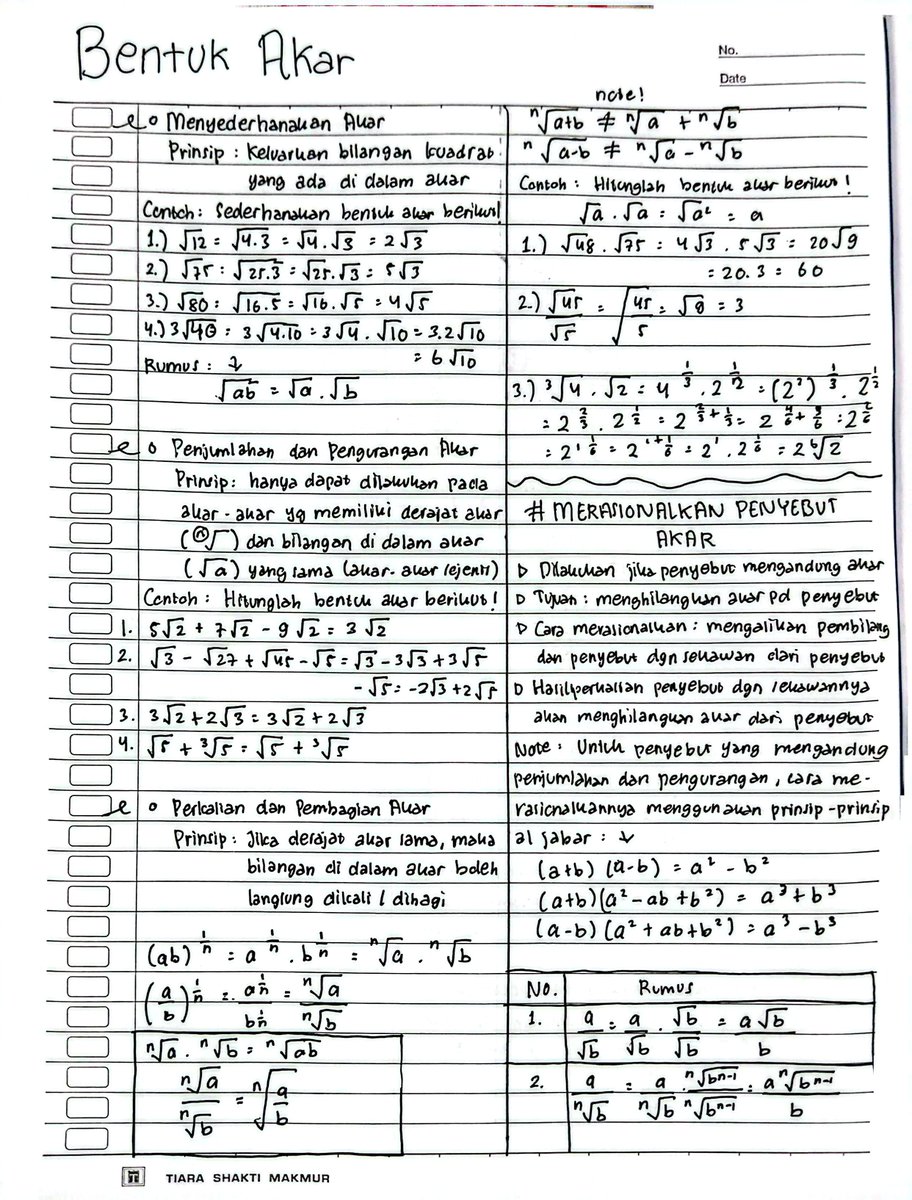 Bentuk Akar
No.
Date
o Menyederhanakan Akar
Prinsip : Keluarkan bilangan kuadrat
yang ada di dalam akar
Contoh : Sederhanakan bentuk akar berikut!
1.) √12 = √4.3 = √4 . √3 = 2√3
2.) √75 = √25.3 = √25.√3 = 5√3
3.) √80 = √16.5 = √16 . √5 = 4√5
4.) 3√40 = 3√4.10 = 3√4 . √10 = 3.2√10
= 6√10
Rumus : ↓
√ab = √a . √b
o Penjumlahan dan Pengurangan Akar
Prinsip : hanya dapat dilakukan pada
akar-akar yg memiliki derajat akar
(ⁿ√) dan bilangan di dalam akar
(√a) yang sama (akar-akar sejenis)
Contoh : Hitunglah bentuk akar berikut!
1. 5√2 + 7√2 - 9√2 = 3√2
2. √3 - √27 + √45 - √5 = √3 - 3√3 + 3√5
- √5 = -2√3 + 2√5
3. 3√2 + 2√3 = 3√2 + 2√3
4. √5 + ³√5 = √5 + ³√5
o Perkalian dan Pembagian Akar
Prinsip : Jika derajat akar sama, maka
bilangan di dalam akar boleh
langsung dikali / dibagi
(ab)^(1/n) = a^(1/n) . b^(1/n) = ⁿ√a . ⁿ√b
(a/b)^(1/n) = a^(1/n) / b^(1/n) = ⁿ√a / ⁿ√b
ⁿ√a . ⁿ√b = ⁿ√ab
ⁿ√a / ⁿ√b = ⁿ√(a/b)
note!
ⁿ√a+b ≠ ⁿ√a + ⁿ√b
ⁿ√a-b ≠ ⁿ√a - ⁿ√b
Contoh : Hitunglah bentuk akar berikut!
√a . √a = √a² = a
1.) √48 . √75 = 4√3 . 5√3 = 20√9
= 20.3 = 60
2.) √45 / √5 = √(45/5) = √9 = 3
3.) ³√4 . √2 = 4^(1/3) . 2^(1/2) = (2²)^(1/3) . 2^(1/2)
= 2^(2/3) . 2^(1/2) = 2^(2/3 + 1/3) = 2^(4/6 + 3/6) = 2^(7/6)
= 2^(1 1/6) = 2^(1 + 1/6) = 2¹ . 2^(1/6) = 2 ⁶√2
# MERASIONALKAN PENYEBUT
AKAR
▷ Dilakukan jika penyebut mengandung akar
▷ Tujuan : menghilangkan akar pd penyebut
▷ Cara merasionalkan : mengalikan pembilang
dan penyebut dgn sekawan dari penyebut
▷ Hasil perkalian penyebut dgn sekawannya
akan menghilangkan akar dari penyebut
Note : Untuk penyebut yang mengandung
perjumlahan dan pengurangan, cara me-
rasionalkannya menggunakan prinsip-prinsip
aljabar : ↓
(a+b) (a-b) = a² - b²
(a+b)(a² - ab + b²) = a³ + b³
(a-b) (a² + ab + b²) = a³ - b³
No. Rumus
1. a/√b = a/√b . √b/√b = a√b / b
2. a/ⁿ√b = a/ⁿ√b . ⁿ√bⁿ⁻¹ / ⁿ√bⁿ⁻¹ = a ⁿ√bⁿ⁻¹ / b
TIARA SHAKTI MAKMUR